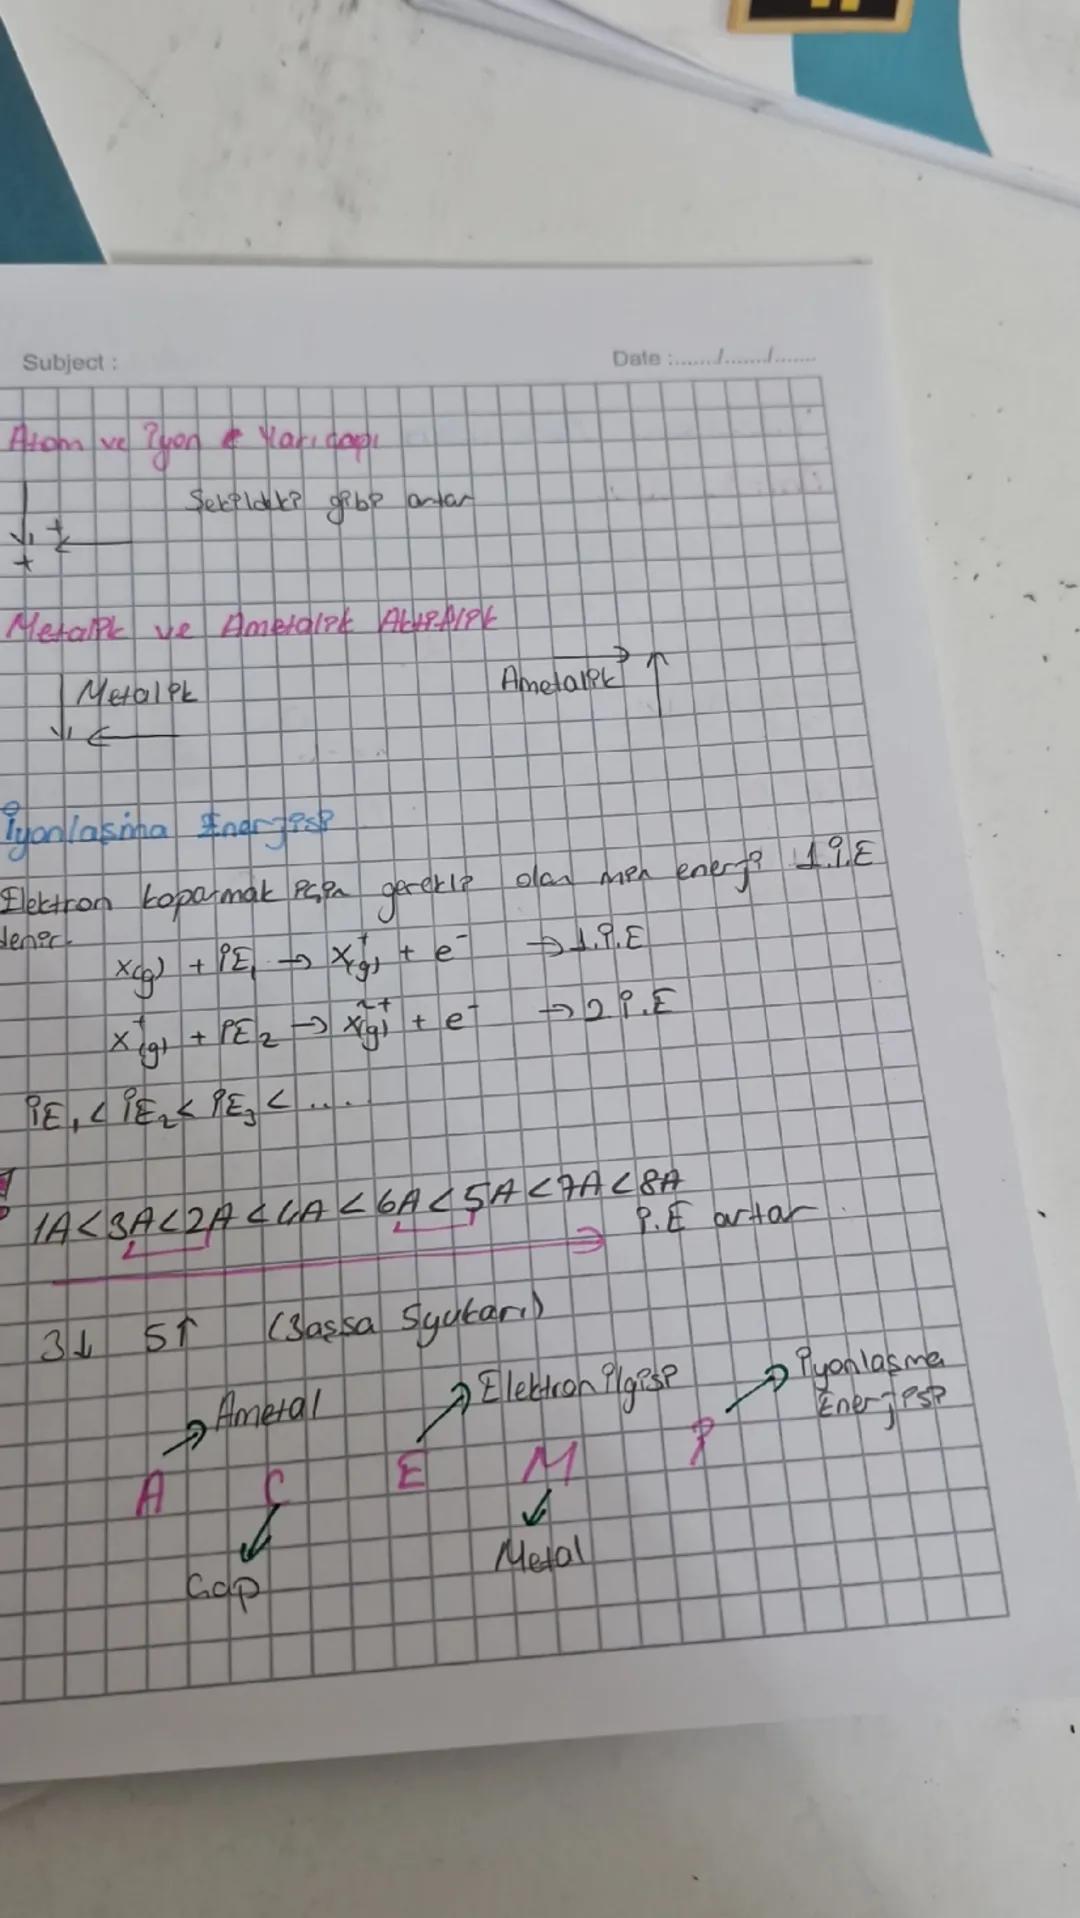 Subject :
Date :......./......./.......
Atom ve İyon Yarıçapı
Şekildeki gibi artar
+
+
Metalik ve Ametalik Aktiflik
Metalik
Ametalik
İyonlaşma Enerjisi
Elektron koparmak için gerekli olan min enerji 1.İ.E
denir.
X(g) + İE₁ → X⁺(g) + e⁻ → 1.İ.E
X⁺(g) + İE₂ → X²⁺(g) + e⁻ → 2 İ.E
İE₁ < İE₂ < İE₃ < ....
1A < 3A < 2A < 4A < 6A < 5A < 7A < 8A
İ.E artar
3↓ 5↑ (3aşşa 5yukarı)
Ametal
Elektron ilgisi
İyonlaşma
Enerjisi
A Ç E M İ
Çap
Metal